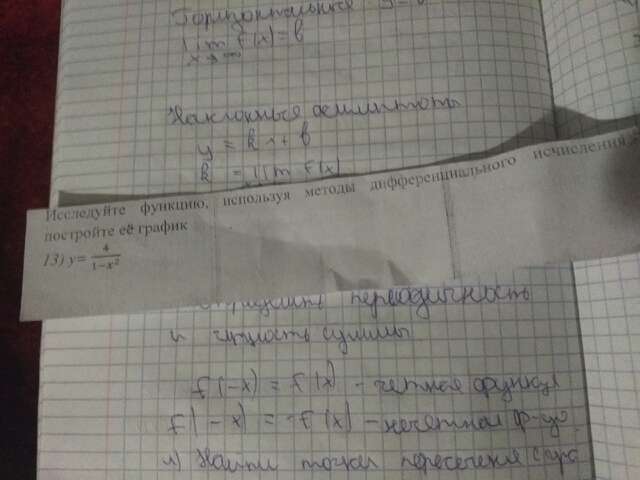 Горизонтальные
lim f(x)=b
x→∞
Наклонные асимптоты
y = kx+b
k = lim f(x)
Исследуйте функцию, используя методы дифференциального исчисления,
постройте её график
13) y= 4/(1−x²)
переодичность
и
f(-x) = f(x) - четная функц
f(-x) = -f(x) - нечетная ф-ция
4) Найти точки пересечения с